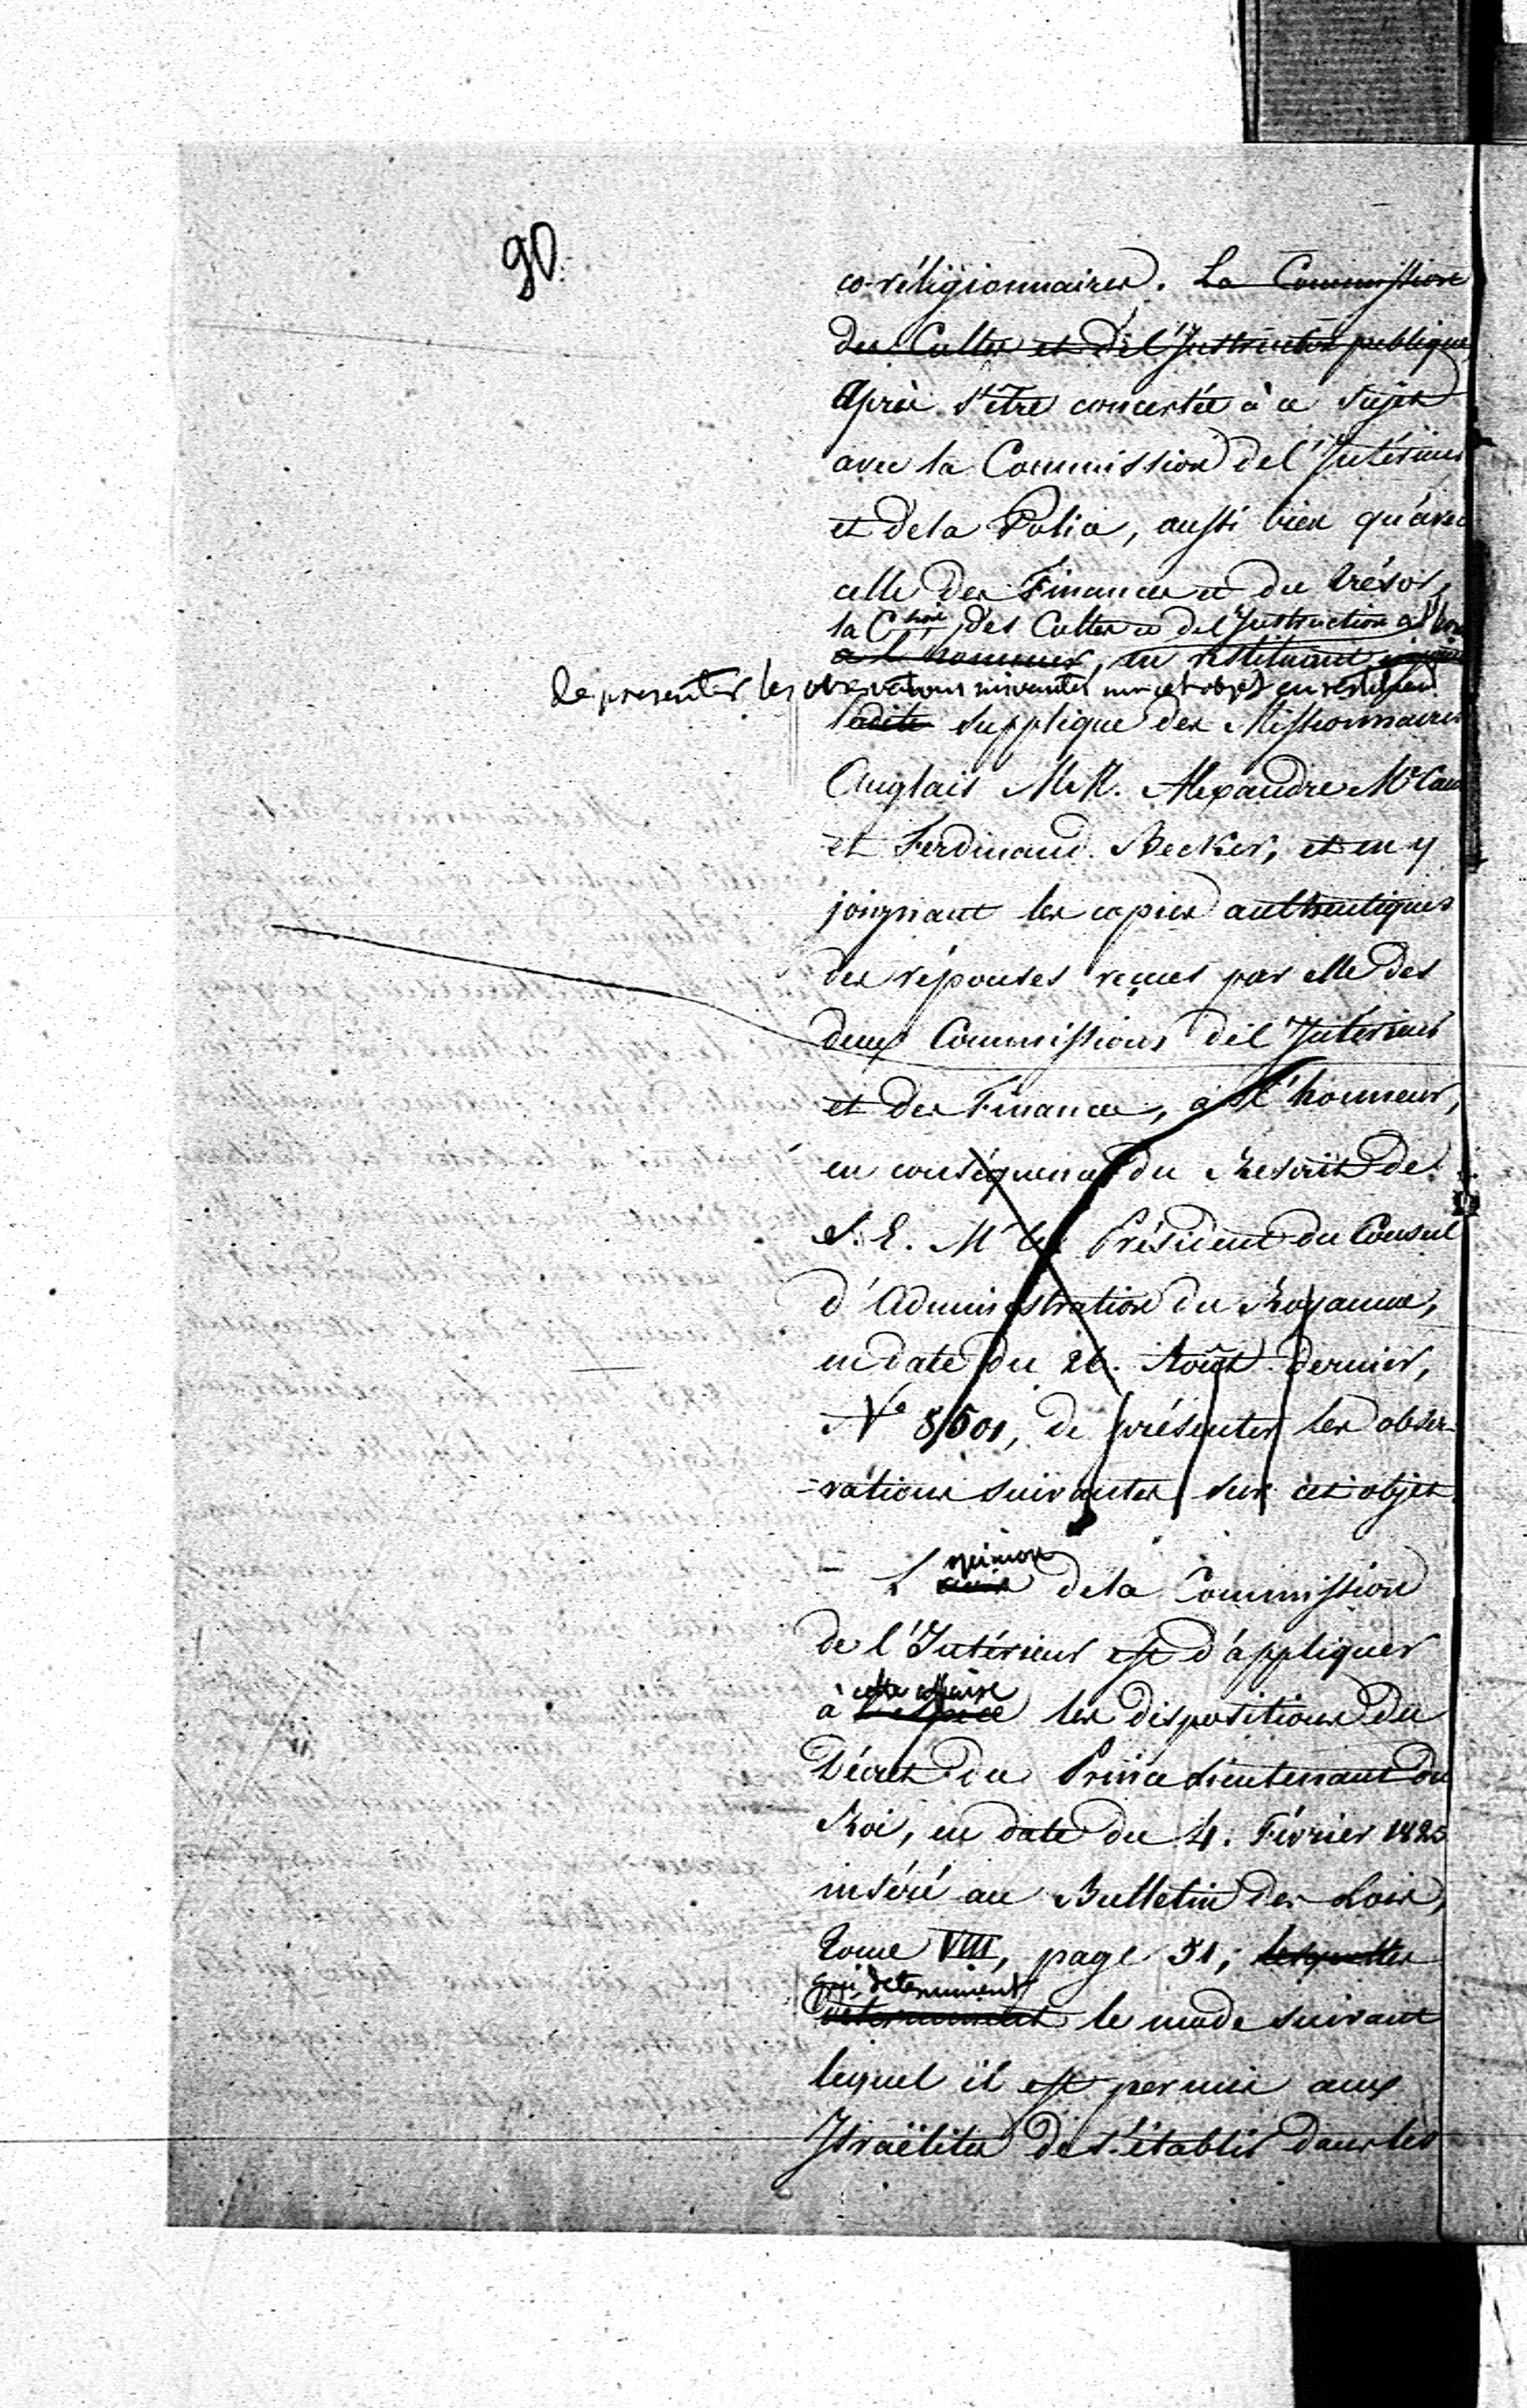 90.
co-réligionnaires. La Commission
des Cultes et de l'Instruction publique
Après s'être concertée à ce sujet
avec la Commission de l'Intérieur
et de la Police, aussi bien qu'avec
celle des Finances et du Trésor,
la C des Cultes et de l'Instruction a l'hon
a l'honneur, en restituant
de presenter les observations suivantes sur cet objet en restituant
ladite supplique des Missionnaires
Anglais MM. Alexandre McCaul
et Ferdinand Becker, et en y
joignant les copies authentiques
des réponses reçues par elle des
deux Commissions de l'Intérieur
et des Finances, a l'honneur,
en conséquence du Rescrit de
S. E. Mr le Président du Conseil
d'Administration du Royaume,
en date du 26. Août dernier,
No 8501, de présenter les obser-
-vations suivantes sur cet objet
L'opinion de la Commission
de l'Intérieur est d'appliquer
à cette affaire l'espèce les dispositions du
Décret du Prince Lieutenant du
Roi, en date du 4. Février 1825
inséré au Bulletin des Lois,
Tome VIII, page 51; lesquelles
qui determinent
déterminent le mode suivant
lequel il est permis aux
Israëlites de s'établir dans les